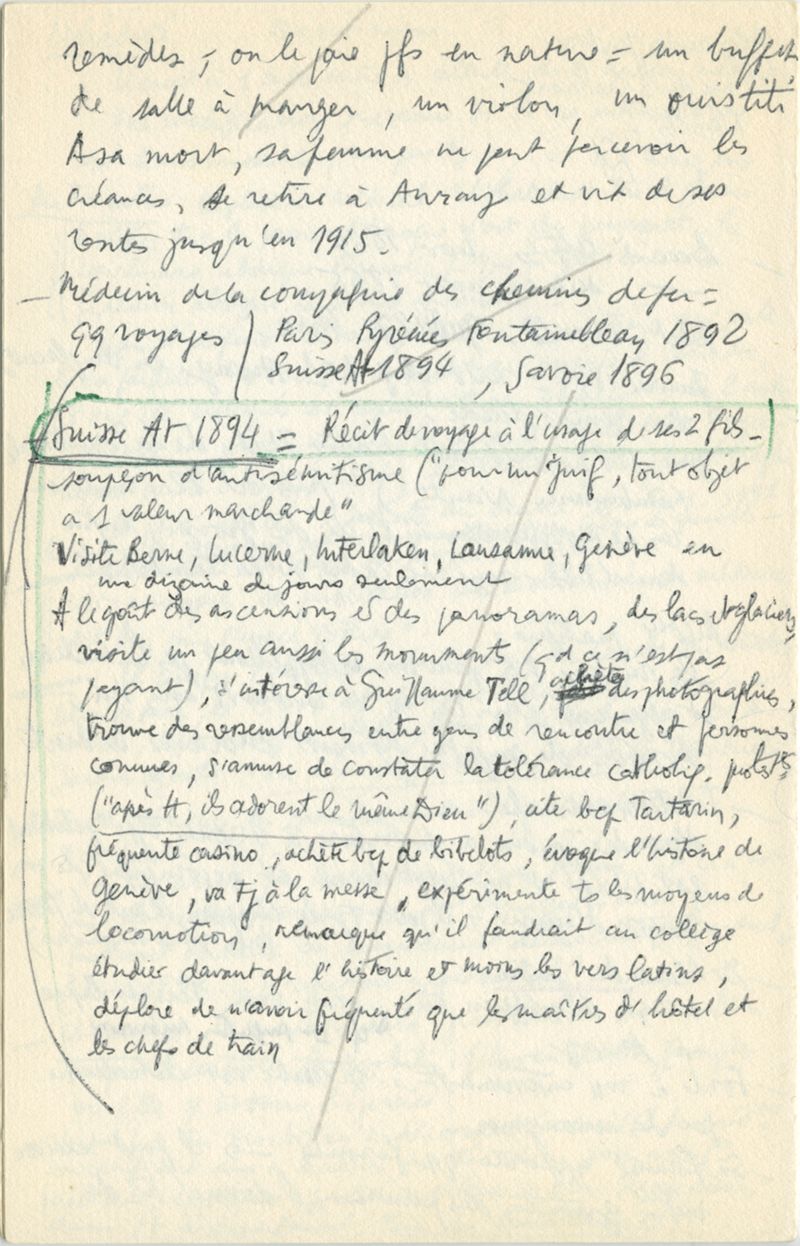 remèdes, on le paie pfs en nature = un buffet
de salle à manger, un violon, un ouistiti
A sa mort, sa femme ne peut percevoir les
créances, se retire à Auray et vit de ses
rentes jusqu'en 1915.
— Médecin de la compagnie des chemins de fer =
qq voyages ) Paris Pyrénées Fontainebleau 1892
Suisse At 1894, Savoie 1896
Suisse At 1894 = Récit de voyage à l'usage de ses 2 fils -
soupçon d'antisémitisme ("pour un Juif, tout objet
a 1 valeur marchande"
Visite Berne, Lucerne, Interlaken, Lausanne, Genève en
une dizaine de jours seulement
A le goût des ascensions et des panoramas, des lacs et glaciers,
visite un peu aussi les monuments (qd ce n'est pas
payant), s'intéresse à Guillaume Tell, achète des photographies,
trouve des ressemblances entre gens de rencontre et personnes
connues, s'amuse de constater la tolérance catholiq. protest
("après tt, ils adorent le même Dieu"), cite bcp Tartarin,
fréquente casino, achète bcp de bibelots, évoque l'histoire de
Genève, va tj à la messe, expérimente ts les moyens de
locomotion, remarque qu'il faudrait au collège
étudier davantage l'histoire et moins les vers latins,
déplore de n'avoir fréquenté que les maîtres d'hôtel et
les chefs de train